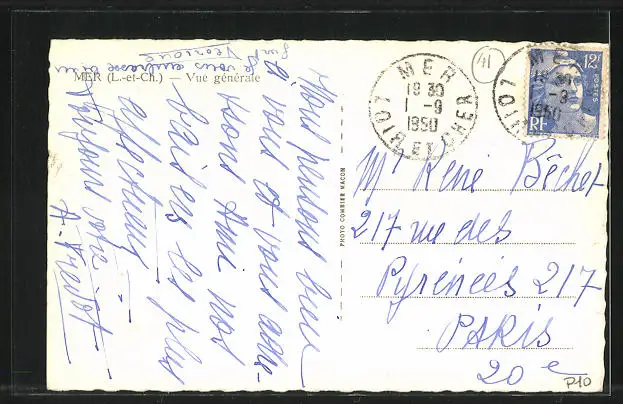 MER (L.-et-Ch.) — Vue générale
Je vous embrasse
Nous pensons bien
à vous et vous
nos
baisers les plus
affectueux
Toujours votre
PHOTO COMBIER MACON
MER
18 30
1 -9
1950
LOIR ET CHER
41
MER
18 30
1 -9
1950
LOIR
12F
POSTES
RF
Mr René Béchet
217 rue des
Pyrénées 217
PARIS
20e
P10